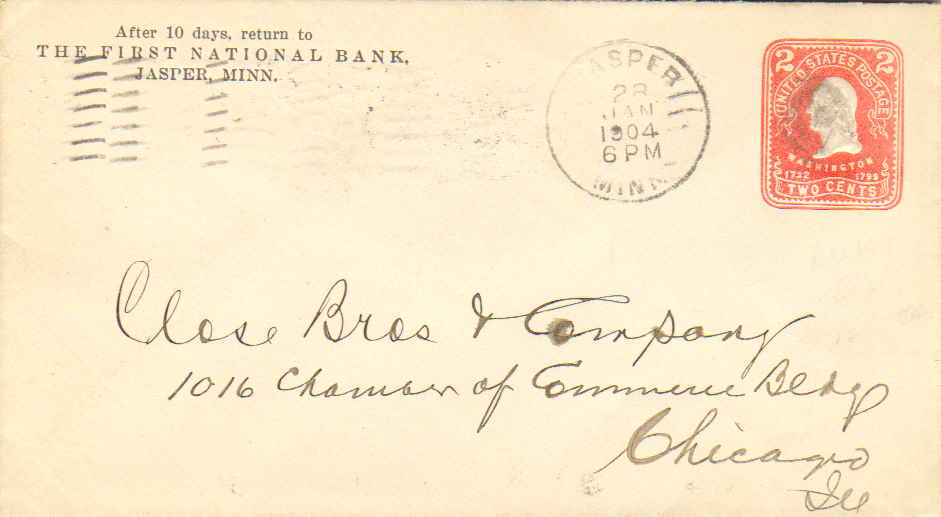 After 10 days, return to
THE FIRST NATIONAL BANK,
JASPER, MINN.
JASPER
28
JAN
1904
6 PM
MINN.
2 2
UNITED STATES POSTAGE
WASHINGTON
1732 1799
TWO CENTS
Close Bros & Company
1016 Chamber of Commerce Bldg
Chicago
Ill